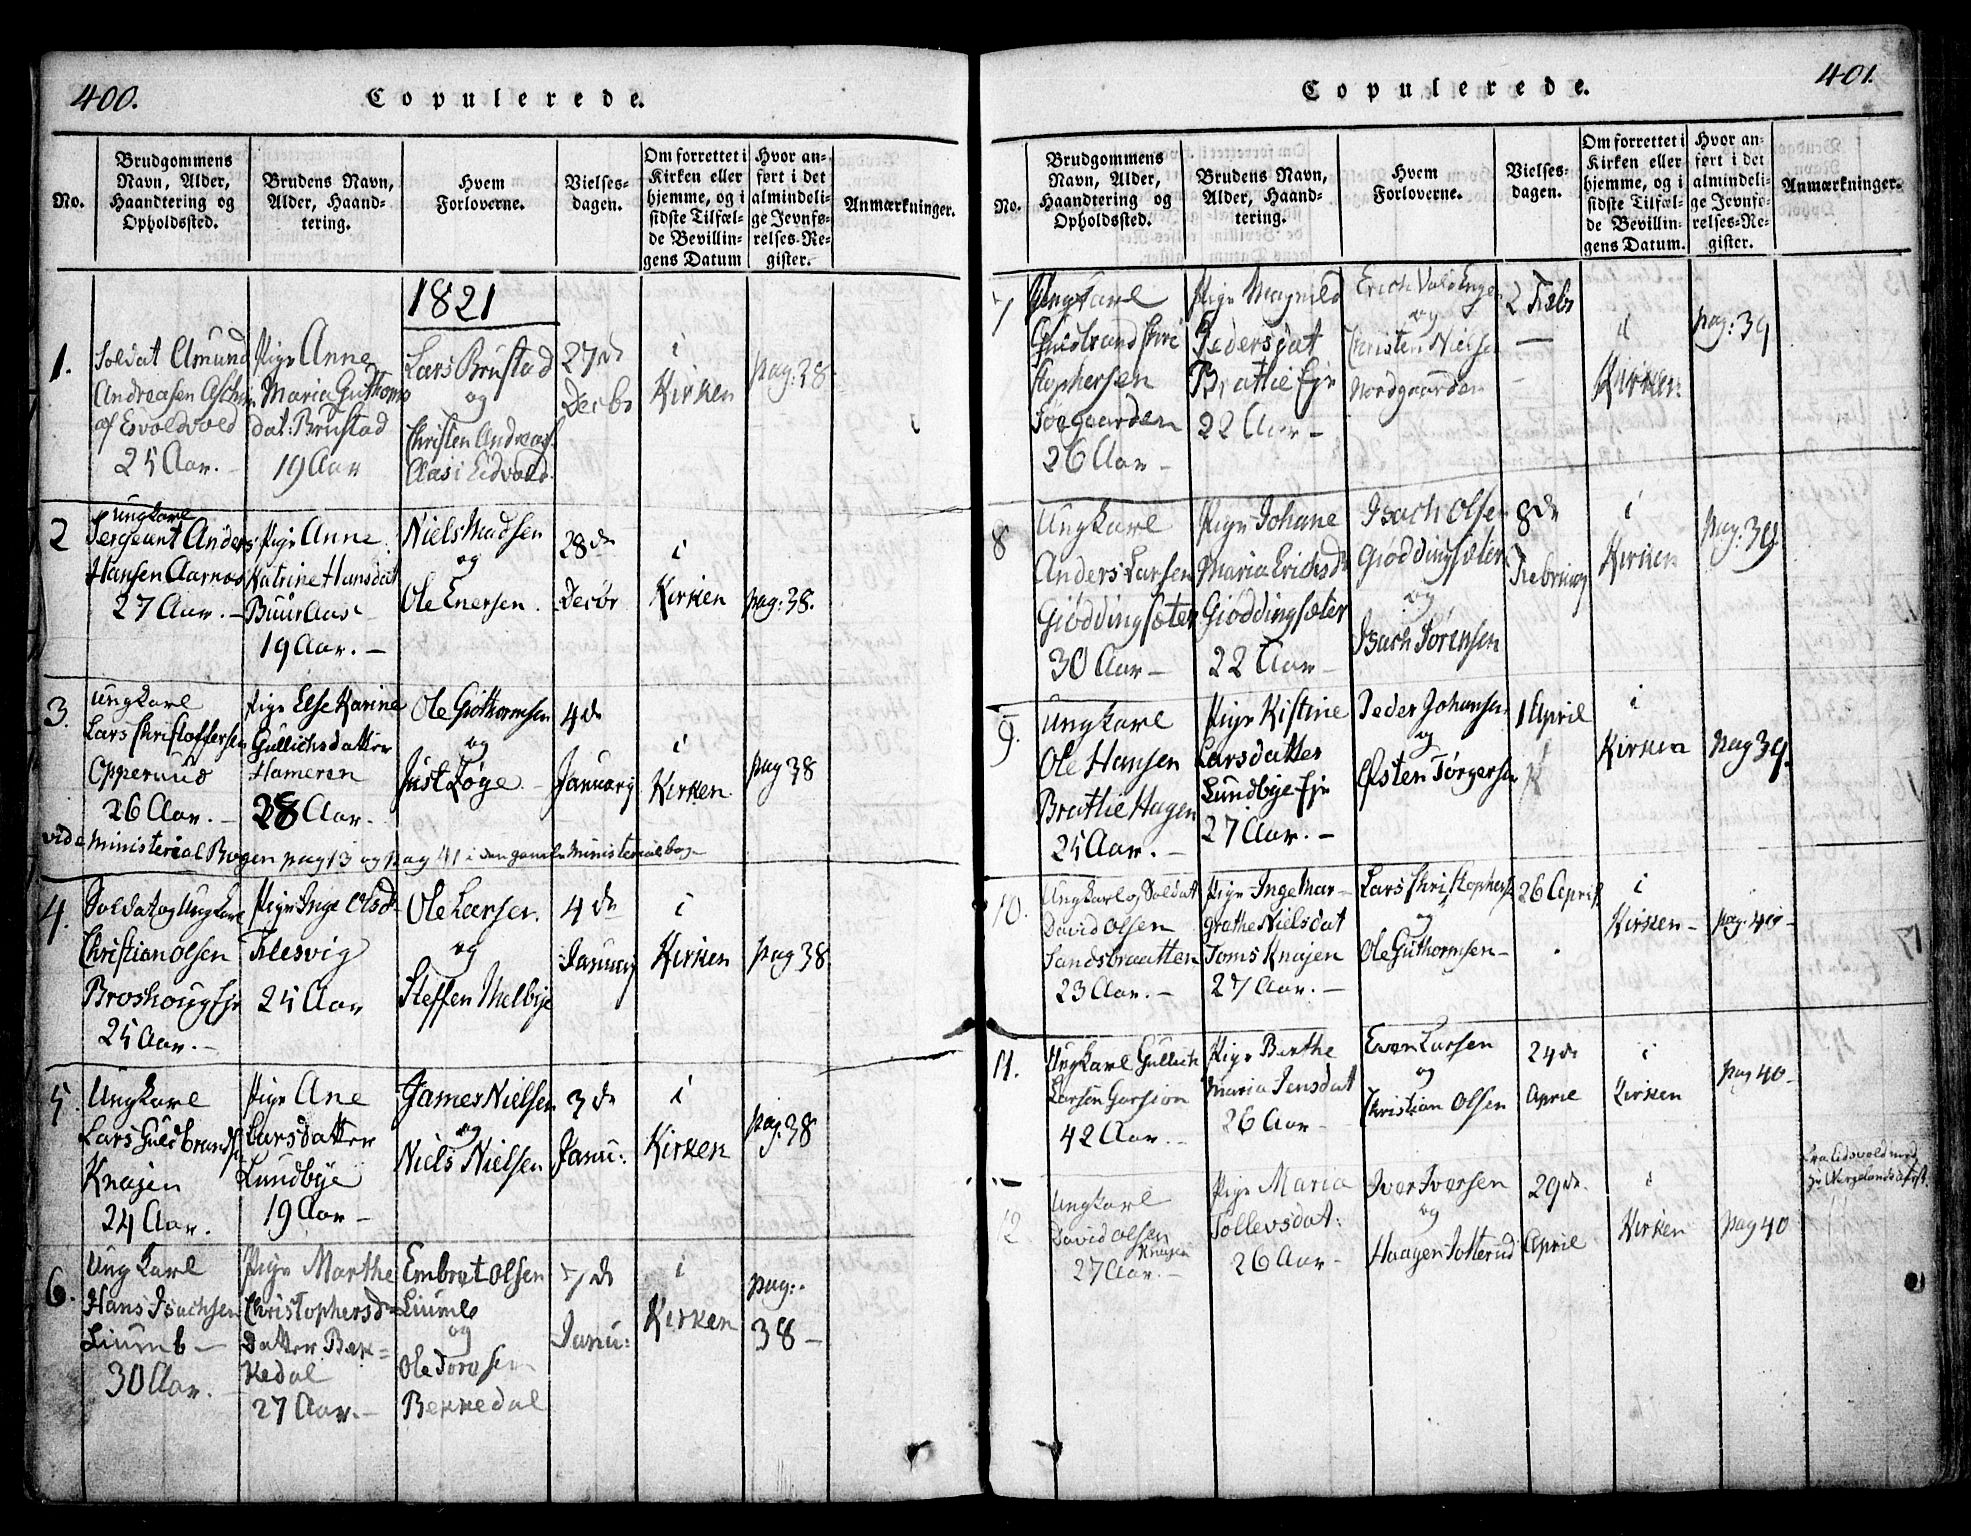 400.
Copulerede.
No.
Brudgommens
Navn, Alder,
Haandtering og
Opholdssted.
Brudens Navn,
Alder, Haand-
tering.
Hvem
Forloverne.
Vielses-
dagen.
Om forrettet i
Kirken eller
hjemme, og i
sidste Tilfæl-
de Bevillin-
gens Datum
Hvor an-
ført i det
almindeli-
ge Jevnfø-
relses-Re-
gister.
Anmærkninger.
1821
1.
Soldat Amund
Andreasen
af Esvoldvold
25 Aar.
Pige Anne
Maria Guthorms
dat: Brustad
19 Aar
Lars Brustad
og
Christen Andreas
Aas i Eidvold.
27de
Decbr
i
Kirken
pag: 38
2
Ungkarl
Sergeant Anders
Hansen Aarnæs
27 Aar. —
Pige Anne
Katrine Hansdat
Buur Aas
19 Aar. —
Niels Madsen
og
Ole Enersen.
28de
Decbr
i
Kirken
pag: 38.
3.
Ungkarl
Lars Kristoffersen
Opperuud
26 Aar. —
Pige Else Karine
Gullichsdatter
Hameren
28 Aar.
Ole Giøthormsen
og
Just Løge. —
4de
Januarij
i
Kirken.
pag 38
vide Ministerial Bogen pag 13 og pag 41 i den gamle Ministerialbog
4.
Soldat og Ungkarl
Christian Olsen
Broshoug Eje
25 Aar. —
Pige Inge Olsd
Flesvig
25 Aar
Ole Larsen.
og
Steffen Melbye
4de
Januarij
i
Kirken
pag 38
5.
Ungkarl
Lars Guldbrands
Knajen
24 Aar.
Pige Ane
Larsdatter
Lundbye
19 Aar —
James Nielsen
og
Niels Nielsen
3de
Janu:
i
Kirken
pag: 38
6.
Ungkarl
Hans Isachsen
Liumb —
30 Aar. —
Pige Marthe
Christophersd-
Datter Bek=
kedal
27 Aar. —
Embret Olsen
Liumb
og
Ole
Bekkedal
7de
Janu:
i
Kirken
pag:
38 —
401.
Copulerede.
No.
Brudgommens
Navn, Alder,
Haandtering og
Opholdssted.
Brudens Navn,
Alder, Haand-
tering.
Hvem
Forloverne.
Vielses-
dagen.
Om forrettet i
Kirken eller
hjemme, og i
sidste Tilfæl-
de Bevillin-
gens Datum.
Hvor an-
ført i det
almindeli-
ge Jevnfø-
relses-Re-
gister.
Anmærkninger.
7
Ungkarl
Guldbrand Chri
stophersen
Søegaarden
26 Aar —
Pige Magnild
Pedersdat
Brathie Eje
22 Aar —
Erich Vold Engen
og
Christen Nielsen
Nordgaarden
2 Febr
i
Kirken:
pag: 39
8
Ungkarl
Anders Larsen
Giøddingsæter
30 Aar —
Pige Johane
Maria Erichsd
Giøddingsæter
22 Aar —
Isach Olsen
Giøddingsæter
og
Isach Jørensen
8de
Februarij
i
Kirken
pag: 39
9.
Ungkarl
Ole Hansen
Brathie Hagen
25 Aar. —
Pige Kistine
Larsdatter
Lundbye Eje
27 Aar. —
Peder Johansen
og
Østen Tørgersen
1 April
i
Kirken
pag 39.
10.
Ungkarl og Soldat
David Olsen
Sandsbraatten
23 Aar. —
Pige Inge Mar-
grethe Nielsdat
Toms Knajen
27 Aar. —
Lars Christophers
og
Ole Guthormsen —
26 April
i
Kirken —
pag. 40 —
11.
Ungkarl Gullich
Larsen Garsion
42 Aar. —
Pige Berthe
Maria Jensdat
26 Aar —
Even Larsen
og
Christian Olsen
24de
April
i
Kirken
pag 40 —
12
Ungkarl
David Olsen
Knajen
27 Aar. —
Pige Maria
Tollevsdat:
26 Aar —
Iver Iversen
og
Haagen Totterud
29de.
April
i
Kirken
pag 40
Fra Eidsvold med
Hr Wergelands